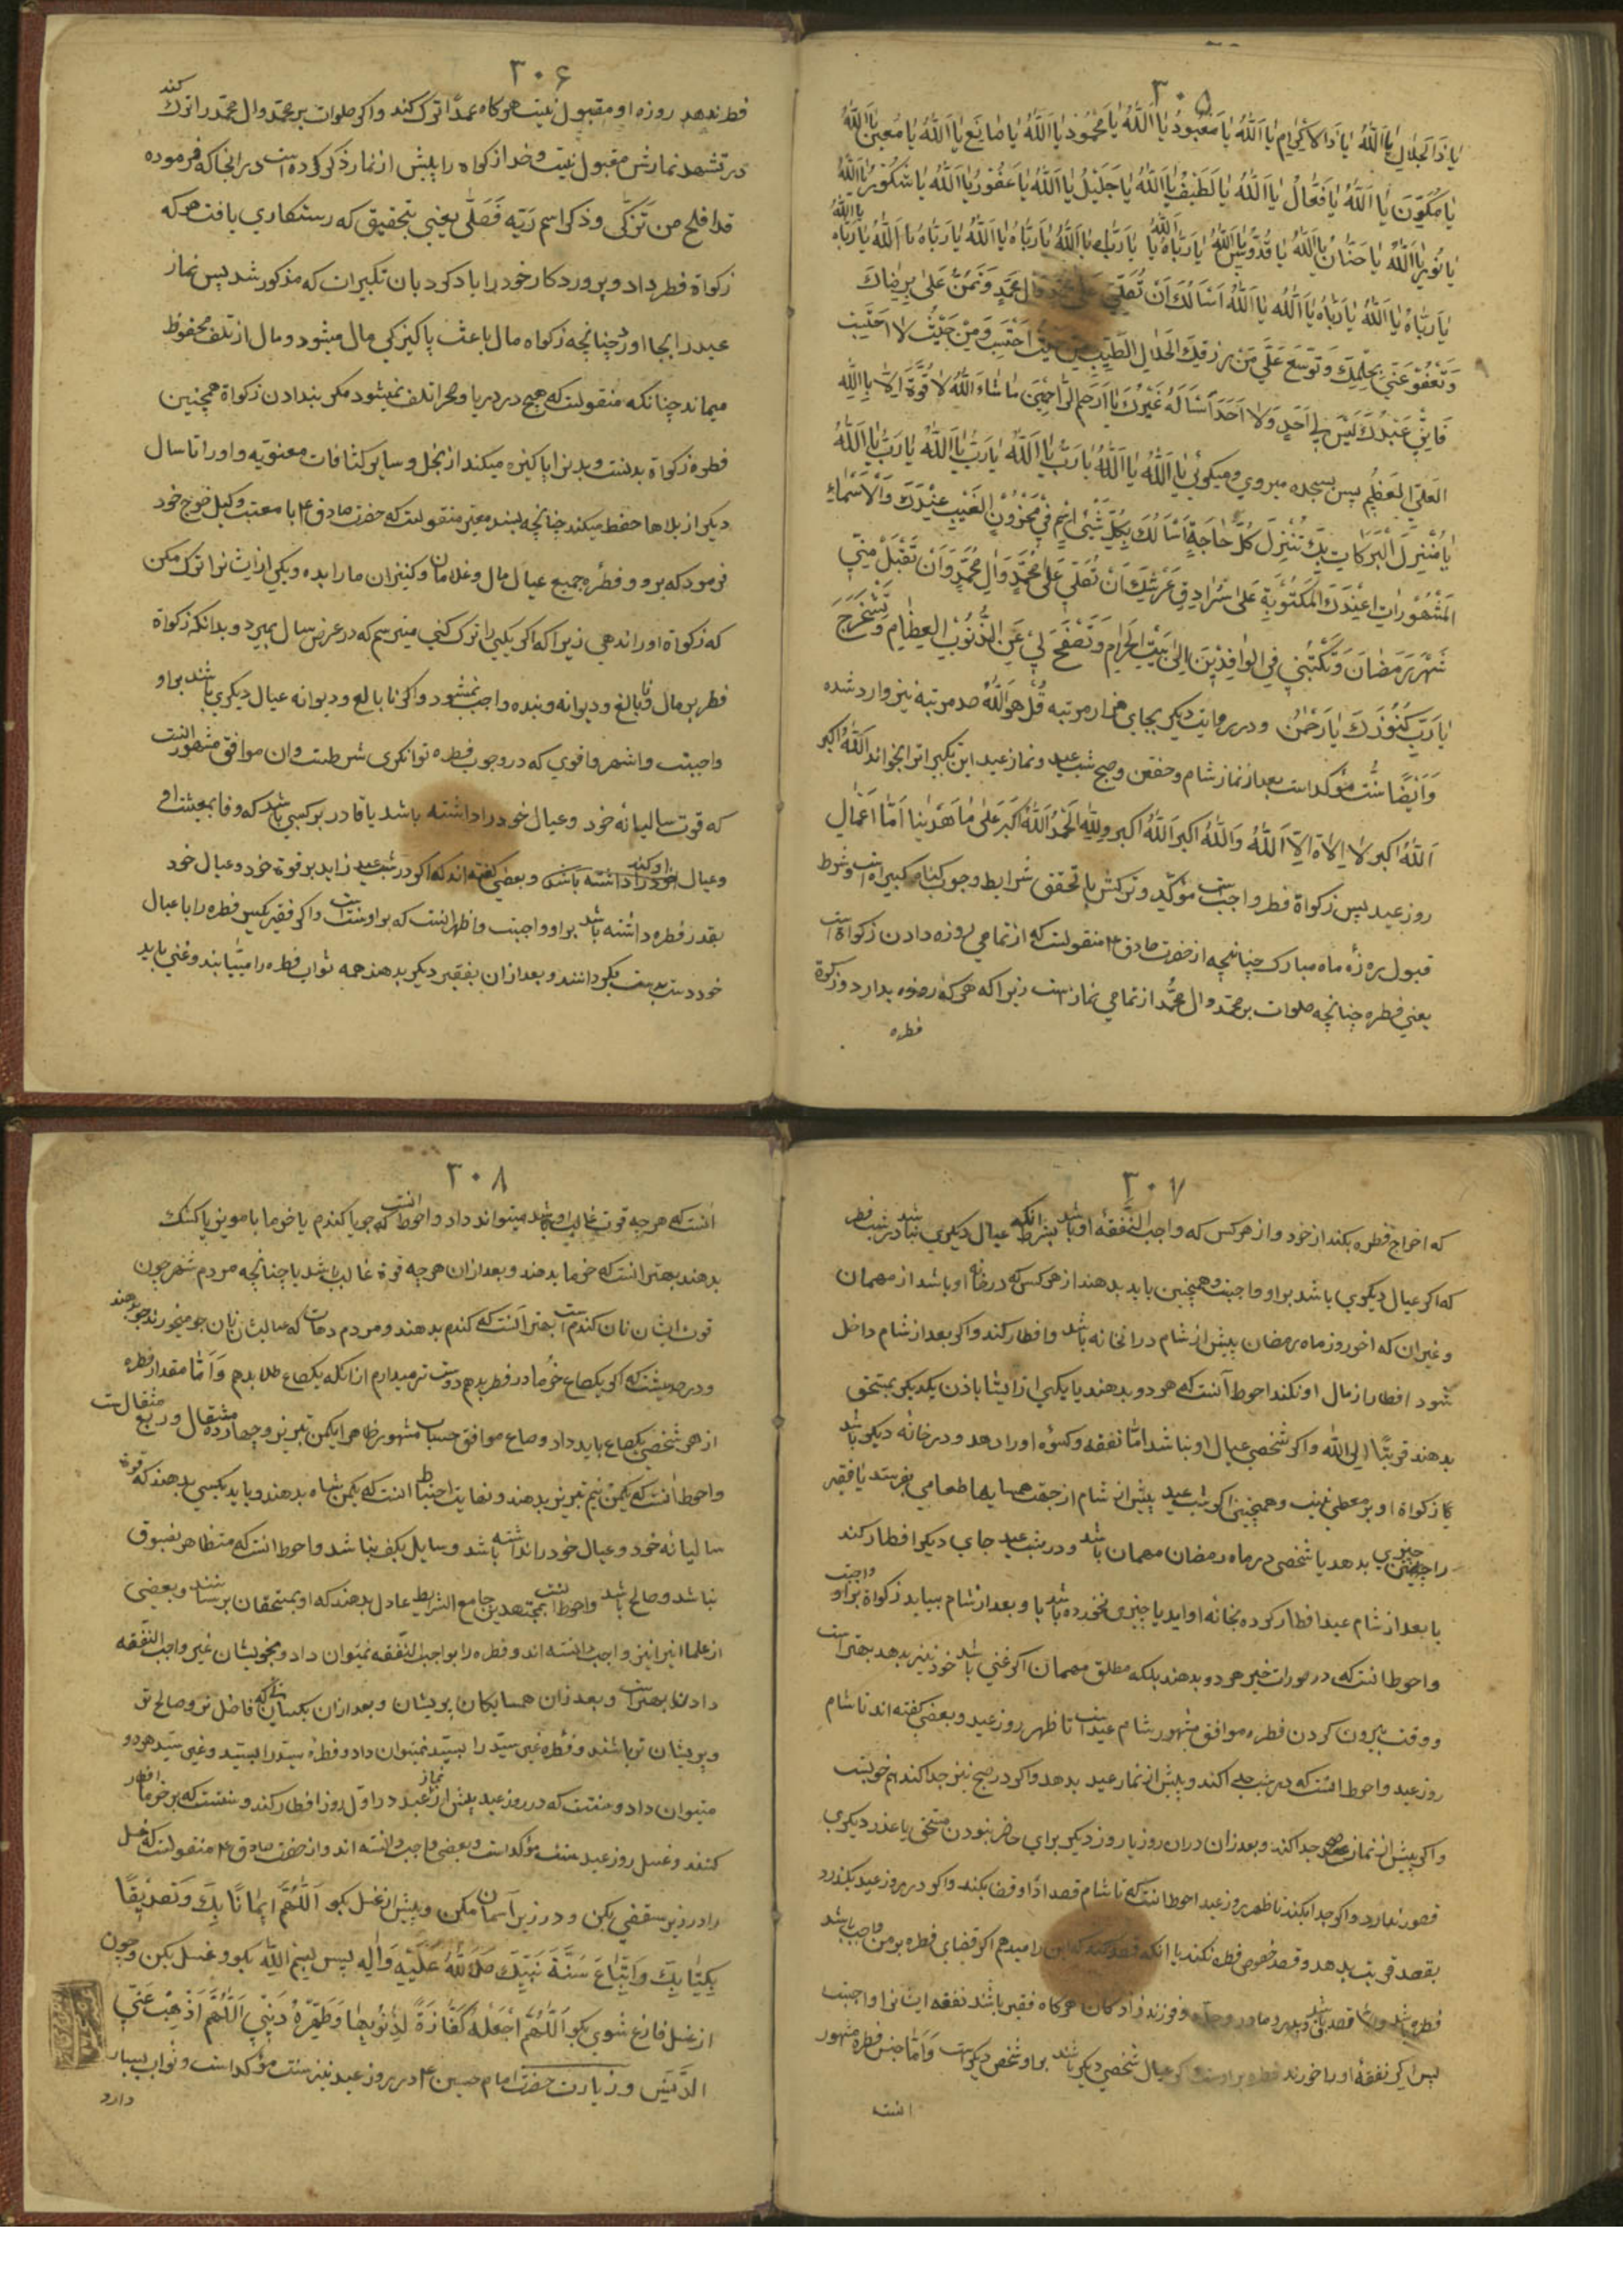 ۳۰۵
یا ذَا الجلال یا اَللّٰهُ یا ذَا الاکرام یا اَللّٰهُ یا مَعْبُودُ یا اَللّٰهُ یا مَحْمُودُ یا اَللّٰهُ یا صٰانِع یا اَللّٰهُ یا مُعین یا اَللّٰهُ
یا مُکَوِّنَ یا اَللّٰهُ یا فَعّٰالُ یا اَللّٰهُ یا لَطیفُ یا اَللّٰهُ یا جَلیلُ یا اَللّٰهُ یا غَفُورُ یا اَللّٰهُ یا شَکُورُ یا اَللّٰهُ
یا نُورُ یا اَللّٰهُ یا حَنّٰانُ یا اَللّٰهُ یا قُدُّوسُ یا اَللّٰهُ یا رَبّٰاهُ یا اَللّٰهُ یا رَبّٰاه یا اَللّٰهُ یا رَبّٰاهُ یا اَللّٰهُ یا رَبّٰاهُ یا اَللّٰهُ یا رَبّٰاه یا اللّٰه
یا رَبّٰاهُ یا اَللّٰهُ یا رَبّٰاهُ یا اَللّٰهُ یا اَللّٰهُ اَسْأَلُکَ اَنْ تُصَلّیَ عَلی محمّد وَاٰلِ محمَّدٍ وَ تَمُنَّ عَلَیَّ بِرِضٰاکَ
وَ تَعْفُوَ عَنّی بِحِلْمِکَ وَ تُوَسِّعَ عَلَیَّ مِنْ رِزقِکَ الحَلٰالِ الطَّیِّبِ مِنْ حَیْثُ اَحْتَسِبُ وَ مِنْ حَیْثُ لٰا اَحْتَسِب
فَاِنّی عَبْدُکَ لَیْسَ لی اَحَدٍ وَ لٰا اَحَدَ اَسْأَلُهُ غَیْرُکَ یا اَرحم الرّاحِمینَ مٰا شٰاءَ اللّٰهُ لٰا قُوَّةَ اِلّٰا بِاللّٰهِ
العَلِیِّ العَظیمِ پس بسجده میروی و میکوئی یا اَللّٰهُ یا اَللّٰهُ یا اَللّٰهُ یا رَبُّ یا اَللّٰهُ یا رَبُّ یا اَللّٰهُ یا رَبُّ یا اَللّٰهُ
یا مُنْزِلَ البَرَکٰاتِ بِکَ تُنْزَلُ کُلُّ حٰاجَةٍ اَسْأَلُکَ بِکُلِّ اسْمٍ فی مَخْزُونِ الغَیْبِ عِنْدَکَ وَ الْاَسْمٰاءِ
المَشْهُورٰاتِ عِنْدَکَ المَکْتُوبَةِ عَلیٰ سُرٰادِقِ عَرْشِکَ اَنْ تُصَلّیَ عَلیٰ مُحَمَّدٍ وَ اٰلِ مُحَمَّدٍ وَ اَنْ تَقْبَلَ مِنّی
شَهْرَ رَمَضٰانَ وَ تَکْتُبَنی فِی الوٰافِدینَ اِلیٰ بَیْتِکَ الحَرٰامِ وَ تَصْفَحَ لی عَنِ الذُّنُوبِ العِظٰامِ وَ تَسْتَخْرِجَ
یا رَبِّ کُنُوزَکَ یا رَحْمٰنُ و در روایت دیکر بجای هزار مرتبه قُل هُوَ اللّٰهُ صد مرتبه نیز وارد شده
وَ اَیْضًا سنّت مؤکد است بعد از نماز شام و خفتن و صبح شب عید و نماز عید این تکبیرات را بخواند اَللّٰهُ اکبر
اَللّٰهُ اکبر لٰا اِلٰهَ اِلّا اَللّٰهُ وَ اَللّٰهُ اکبر اَللّٰهُ اکبر و لِلّٰهِ الحَمْدُ اَللّٰهُ اکبَر عَلیٰ مٰا هَدٰینٰا اَمّٰا اَعْمٰالِ
روز عید پس زکوة فطر واجبست مؤکّد و ترکش با تحقق شرایط وجوب کناه کبیره است و شرط
قبول روزهٔ ماه مبارک چنانچه از حضرت صادق ع منقولست که از تمامی روزه دادن زکواة است
یعنی فطره چنانچه صلوات بر محمّد و ال محمّد از تمامی نماز است زیرا که هر که روزه بدارد و زکوة
فطره
۳۰۶
فطر ندهد روزه او مقبول نیست هرکاه عمدًا ترک کند و اکر صلوات بر محمّد و ال محمّد را ترک کند
در تشهد نمازش مقبول نیست و خدا زکواه را پیش از نماز ذکر کرده است در انجا که فرموده
قد افلح من تَزَکّی و ذکر اسم رَبّه فَصَلّی یعنی بتحقیق که رستکاری یافت هر که
زکواة فطر داد و پروردکار خود را یاد کرد بان تکبیرات که مذکور شد پس نماز
عید را بجا اورد چنانچه زکواه مال باعث پاکیزکی مال میشود و مال از تلف محفوظ
میماند چنانکه منقولست که هیچ در دریا و صحرا تلف نمیشود مکر بندادن زکواة همچنین
فطره زکواة بدنست و بدن را پاکیزه میکند از بخل و سایر کثافات معنویه و او را تا سال
دیکر از بلاها حفظ میکند چنانچه بسند معتبر منقولست که حضرت صادق ع با معتب وکیل خرج خود
فرمود که برو و فطرهٔ جمیع عیال مال و غلامان و کنیزان ما را بده و یکی از ایشان را ترک مکن
که زکواة او را ندهی زیرا که اکر یکی را ترک کنی میترسم که در عرض سال بمیرد و بدانکه زکواة
فطر بر مال نابالغ و دیوانه و بنده واجب نمیشود و اکر نابالغ و دیوانه عیال دیکری باشند بر او
واجبست و اشهر و اقوی که در وجوب فطره توانکری شرطست و ان موافق مشهور انست
که قوت سالیانه خود و عیال خود را داشته باشد یا قادر بر کسبی باشد که وفا بمعیشت او
و عیال او کند و بعضی کفته اند که اکر در شب عید زاید بر قوة خود و عیال خود
بقدر فطره داشته باشد بر او واجبست و اظهر انست که بر او سنت است و اکر فقیر یکسر فطره را با عیال
خود دست بدست بکردانند و بعد از ان بفقیر دیکر بدهند همه ثواب فطره را مییابند و غنی باید
۳۰۷
که اخراج فطره بکند از خود و از هر کس که واجب النفقه او باشد بشرط انکه عیال دیکری نباشد در شب فطر
که اکر عیال دیکری باشد بر او واجبست و همچنین باید بدهند از هر کس که در خانه او باشد از مهمان
و غیر ان که اخر روز ماه رمضان پیش از شام در انخانه باشد و افطار کند و اکر بعد از شام داخل
شود افطار از مال او نکند احوط آنست که هر دو بدهند یا یکی از ایشان باذن یکدیکر بمستحق
بدهند قربتًا الی اللّٰه و اکر شخصی عیال او نباشد امّا نفقه و کسوه او را دهد و در خانه دیکر باشد
زکواة او بر معطی نیست و همچنین اکر شب عید پیش از شام از جهت همسایها طعامی بفرستد یا فقیر
را چیزی بدهد یا شخصی در ماه رمضان مهمان باشد و در شب عید جای دیکر افطار کند
یا بعد از شام عید افطار کرده بخانه او اید یا چیزی نخورده باشد یا و بعد از شام بیاید زکواة بر او واجب
و احوط انست که در صورت خیر هر دو بدهند بلکه مطلق مهمان اکر غنی باشد خود نیز بدهد بهتر است
و وقت بیرون کردن فطره موافق مشهور شام عید است تا ظهر روز عید و بعضی کفته اند تا شام
روز عید و احوط انست که در شب جدا کند و پیش از نماز عید بدهد و اکر در صبح نیز جدا کند هم خوبست
و اکر پیش از نماز جدا کند و بعد از ان در ان روز یا روز دیکر برای حاضر نبودن مستحق یا عذر دیکری
قصور ندارد و اکر جدا نکند تا ظهر روز عید احوط انست که تا شام قصد ادا و قضا نکند و اکر در روز عید بکذرد
بقصد قربت بدهد و قصد خصوص فطره نکند یا انکه قصد کند که این را میدهم اکر قضای فطره بر من واجب باشد
پس اکر نفقهٔ او را خورند فطره بر اوست و اکر عیال شخصی دیکر باشند بر او شخص دیکر است وَ امّا جنس فطره مشهور
انست
۳۰۸
انست که هر چه قوت غالب او باشد میتواند داد و احوط انست که جو یا کندم یا خرما یا مویز یا کشک
بدهند بهتر انست که خرما بدهند و بعد از ان هر چه قوة غالب باشد یا چنانچه مردم شهر چون
قوت ایشان نان کندم است بهتر آنست که کندم بدهند و مردم دهات که غالبشان نان جو میخورند جو بدهند
و در حدیثست که اکر یکصاع خرما در فطر بدهم دوست تر میدارم از انکه یکصاع طلا بدهم وَ اَمّا مقدار فطره
از هر شخصی یکصاع باید داد و صاع موافق حساب مشهور ظاهرا یکمن تبریز و چهارده مثقال و ربع مثقالست
و احوط انست که یکمن نیم تبریز بدهند و نهایت احتیاط انست که یکمن شاه بدهند و باید بکسی بدهند که قوة
سالیانه خود و عیال خود را نداشته باشد و سایل بکف نباشد و احوط انست که متظاهر بفسوق
نباشد و صالح باشد و احوط انست بمجتهدین جامع الشرایط عادل بدهند که او بمستحقان برساند و بعضی
از علما این را نیز واجب دانسته اند و فطره را بواجب النفقه نمیتوان داد و بخویشان غیر واجب النفقه
دادن بهتر است و بعد از ان همسایکان پریشان و بعد از ان بکسانی که فاضل تر و صالح تر
و پریشان تر باشند و فطره غیر سید را بسید نمیتوان داد و فطرهٔ سید را بسید و غیر سید هر دو
میتوان داد و سنتست که در روز عید پیش از نماز عید در اوّل روز افطار کند و سنتست که بر خرما افطار
کنند و غسل روز عید سنت مؤکد است و بعضی واجب دانسته اند و از حضرت صادق ع منقولست که غسل
را در زیر سقفی بکن و در زیر آسمان مکن و پیش از غسل بکو اَللّٰهُمَّ اِیمٰانًا بِکَ وَ تَصْدیقًا
بِکِتٰابِکَ وَ اتِّبٰاعَ سُنَّةِ نَبِیِّکَ صَلَّی اللّٰهُ عَلَیْهِ وَ اٰلِه پس بسم اللّٰه بکو و غسل بکن و چون
از غسل فارغ شوی بکو اَللّٰهُمَّ اجْعَلْهُ کَفّٰارَةً لِذُنُوبی وَ طَهِّرْ دینی اَللّٰهُمَّ اَذْهِبْ عَنّی
الدَّنَسَ و زیارت حضرت امام حسین ع در روز عید نیز سنت مؤکد است و ثواب بسیار
دارد